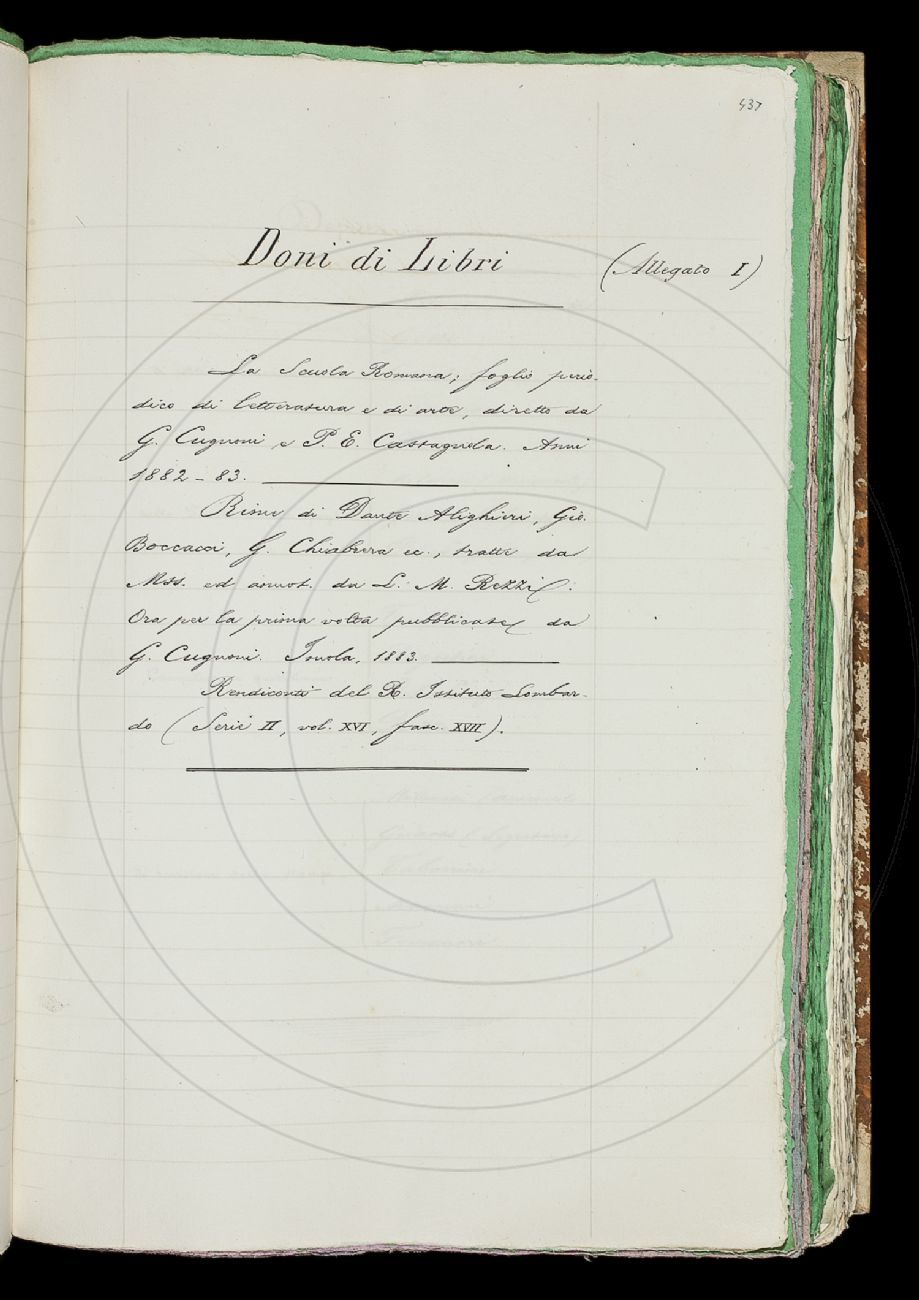 437
Doni di Libri
(Allegato I)
La Scuola Romana; foglio perio-
dico di letteratura e di arte, diretto da
G. Cugnoni e P. E. Castagnola. Anni
1882-83.
Rime di Dante Alighieri, Gio.
Boccacci, G. Chiabrera ec., tratte da
Mss. ed annot. da L. M. Rezzi.
Ora per la prima volta pubblicate da
G. Cugnoni. Imola, 1883.
Rendiconti del R. Istituto Lombar-
do (Serie II, vol. XVI, fasc. XVII).